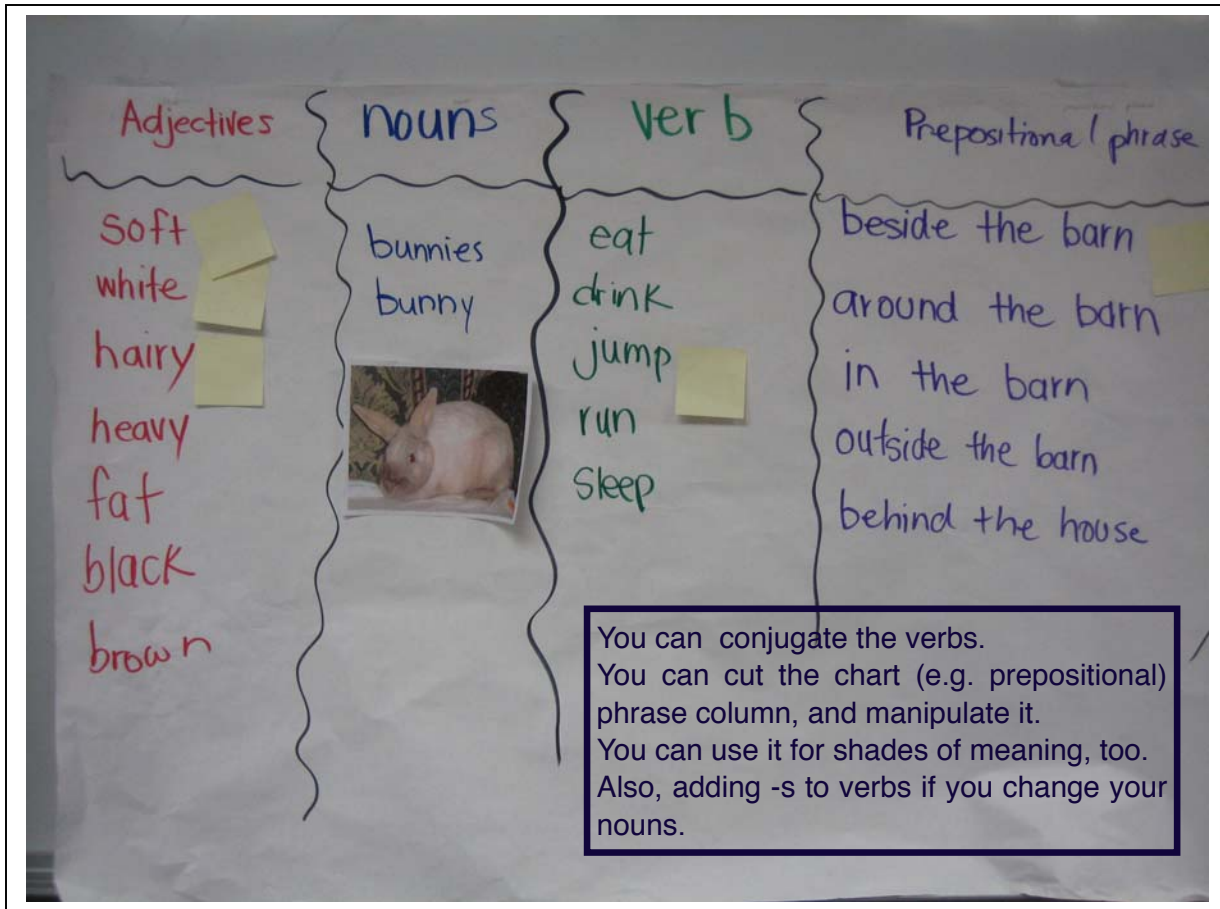 Adjectives
nouns
verb
Prepositional phrase
soft
white
hairy
heavy
fat
black
brown
bunnies
bunny
eat
drink
jump
run
Sleep
beside the barn
around the barn
in the barn
outside the barn
behind the house
You can conjugate the verbs.
You can cut the chart (e.g. prepositional)
phrase column, and manipulate it.
You can use it for shades of meaning, too.
Also, adding -s to verbs if you change your
nouns.